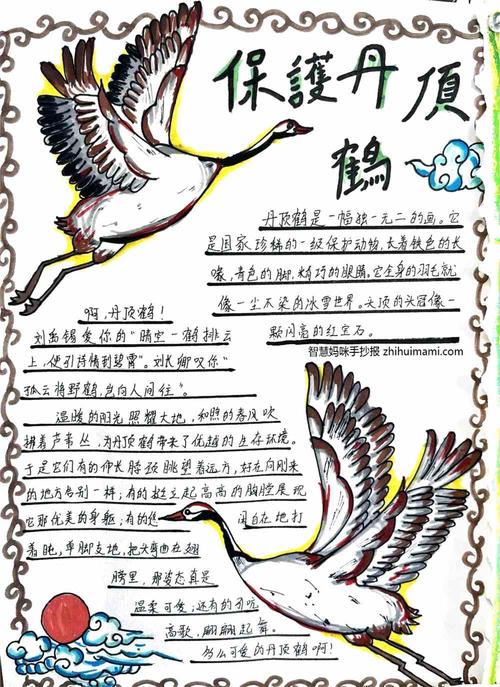 保護丹頂
鶴
丹顶鹤是一幅独一元二的画。它
是国家珍稀的一级保护动物,长着铁色的长
喙,青色的脚,精巧的腿腕。它全身的羽毛就
像一尘不染的冰雪世界。头顶的头冠像一
颗闪亮的红宝石。
智慧妈咪手抄报 zhihuimami.com
啊,丹顶鹤!
刘禹锡爱你的"晴空一鹤排云
上,便引诗情到碧霄"。刘长卿叹你"
孤云将野鹤,岂向人间住"。
温暖的阳光照耀大地,和煦的春风吹
拂着芦苇丛,为丹顶鹤带来了优越的生存环境。
于是它们有的伸长脖颈眺望着远方,好在向刚来
的地方告别一样;有的挺立起高高的胸膛展现
它那优美的身躯;有的
闲自在地打
着盹,单脚支地,把头弯曲在翅
膀里,那姿态真是
温柔可爱;还有的引吭
高歌,翩翩起舞。
多么可爱的丹顶鹤啊!